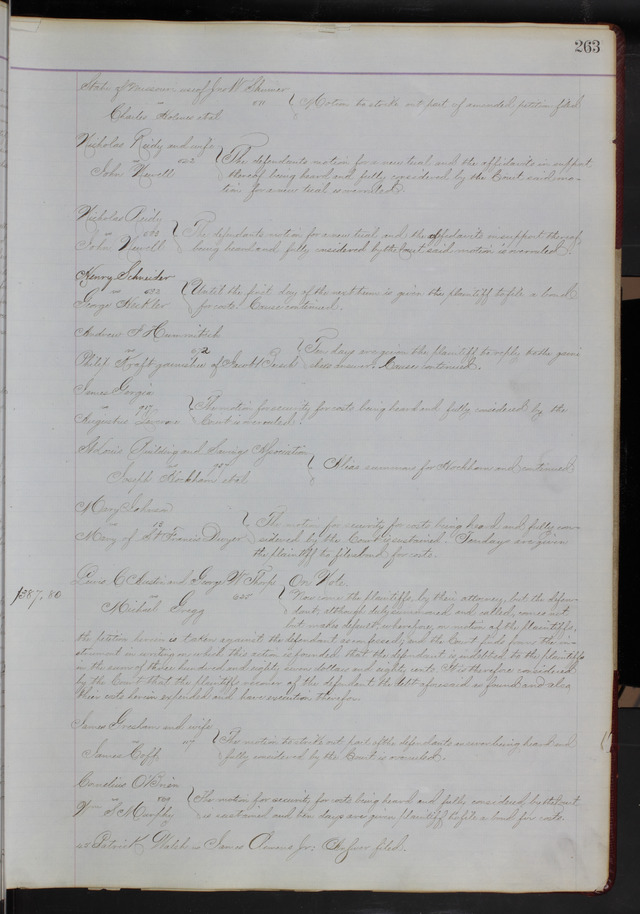 263
State of Missouri use of W Skinner
vs
Charles Holmes et al } Motion to strike out part of amended petition filed
Nicholas Reidy and wife
vs 622
John Newell } The defendants motion for a new trial and the affidavits in support
thereof being heard and fully considered by the Court said mo-
tion for a new trial is overruled.
Nicholas Reidy
vs
John Newell } The defendants motion for a new trial and the affidavits in support thereof
being heard and fully considered by the Court said motion is overruled.
Henry Schneider
vs 692
George } Until the first day of the next time is given the plaintiff to file a bond
for costs. Cause continued.
Andrew F
vs 692
Philip Kraft garnishee of Jacob } Ten days are given the plaintiff to reply to the garni-
shees answer. Cause continued.
James
vs 907
Augustus } The motion for security for costs being heard and fully considered by the
Court is overruled.
St Louis Building and Savings Association
vs
Joseph Hockham et al } Alias summons for Hockham and continued
Mary Johnson
vs 12
Mary of St Francis Dwyer } The motion for security for costs being heard and fully con-
sidered by the Court is sustained. Ten days are given
the plaintiff to file bond for costs.
Lewis C Austin and George W Thorp On Note
$387.80
vs 625
Michael Gregg } Now come the plaintiffs by their attorney, but the defen-
dant, although duly summoned and called, comes not
but makes default; wherefore, on motion of the plaintiffs,
the petition herein is taken against the defendant as confessed; and the Court finds from the in-
strument in writing on which this action is founded that the defendant is indebted to the plaintiffs
in the sum of three hundred and eighty seven dollars and eighty cents. It is therefore considered
by the Court that the plaintiffs recover of the defendant the debt aforesaid as found and also
their costs herein expended and have execution therefor.
James Gresham and wife
vs
James Coff } The motion to strike out part of the defendants answer being heard and
fully considered by the Court is overruled.
Cornelius O'Brien
vs
Wm F Murphy } The motion for security for costs being heard and fully considered by the Court
is sustained and ten days are given plaintiff to file a bond for costs.
Patrick Walsh vs James Owens Jr: Answer filed.